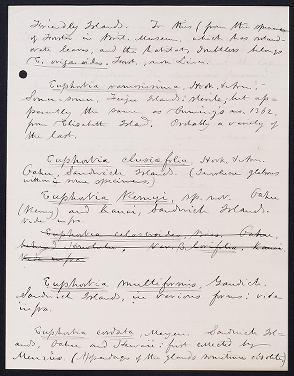 Friendly Islands. To this (from the specimen
of Forster in Brit. Museum, which has
ovate leaves, and the habitat, doubtless belongs
E. origanoides, Forst., non Linn.
Euphorbia ramosissima, Hook. & Arn.:
Somu-somu, Feejee Islands: sterile, but ap-
parently the same as Cuming's no. 1362,
from Elizabeth Island. Probably a variety of
the last.
Euphorbia clusiæfolia Hook. & Arn.
Oahu, Sandwich Islands. (Involucre glabrous
within in some specimens.)
Euphorbia Remyi, sp. nov. Oahu
(Remy) and Kauai, Sandwich Islands.
Vide infra.
Euphorbia celastroides, Boiss., Oahu,
behind Honolulu. Var. β. lorifolia, Kauai.
Vide infra
Euphorbia multiformis, Gaudich.
Sandwich Islands, in various forms: vide
infra.
Euphorbia cordata, Meyen. Sandwich Isl-
ands, Oahu and Hawaii: first collected by
Menzies. (Appendages of the glands sometimes obsolete)